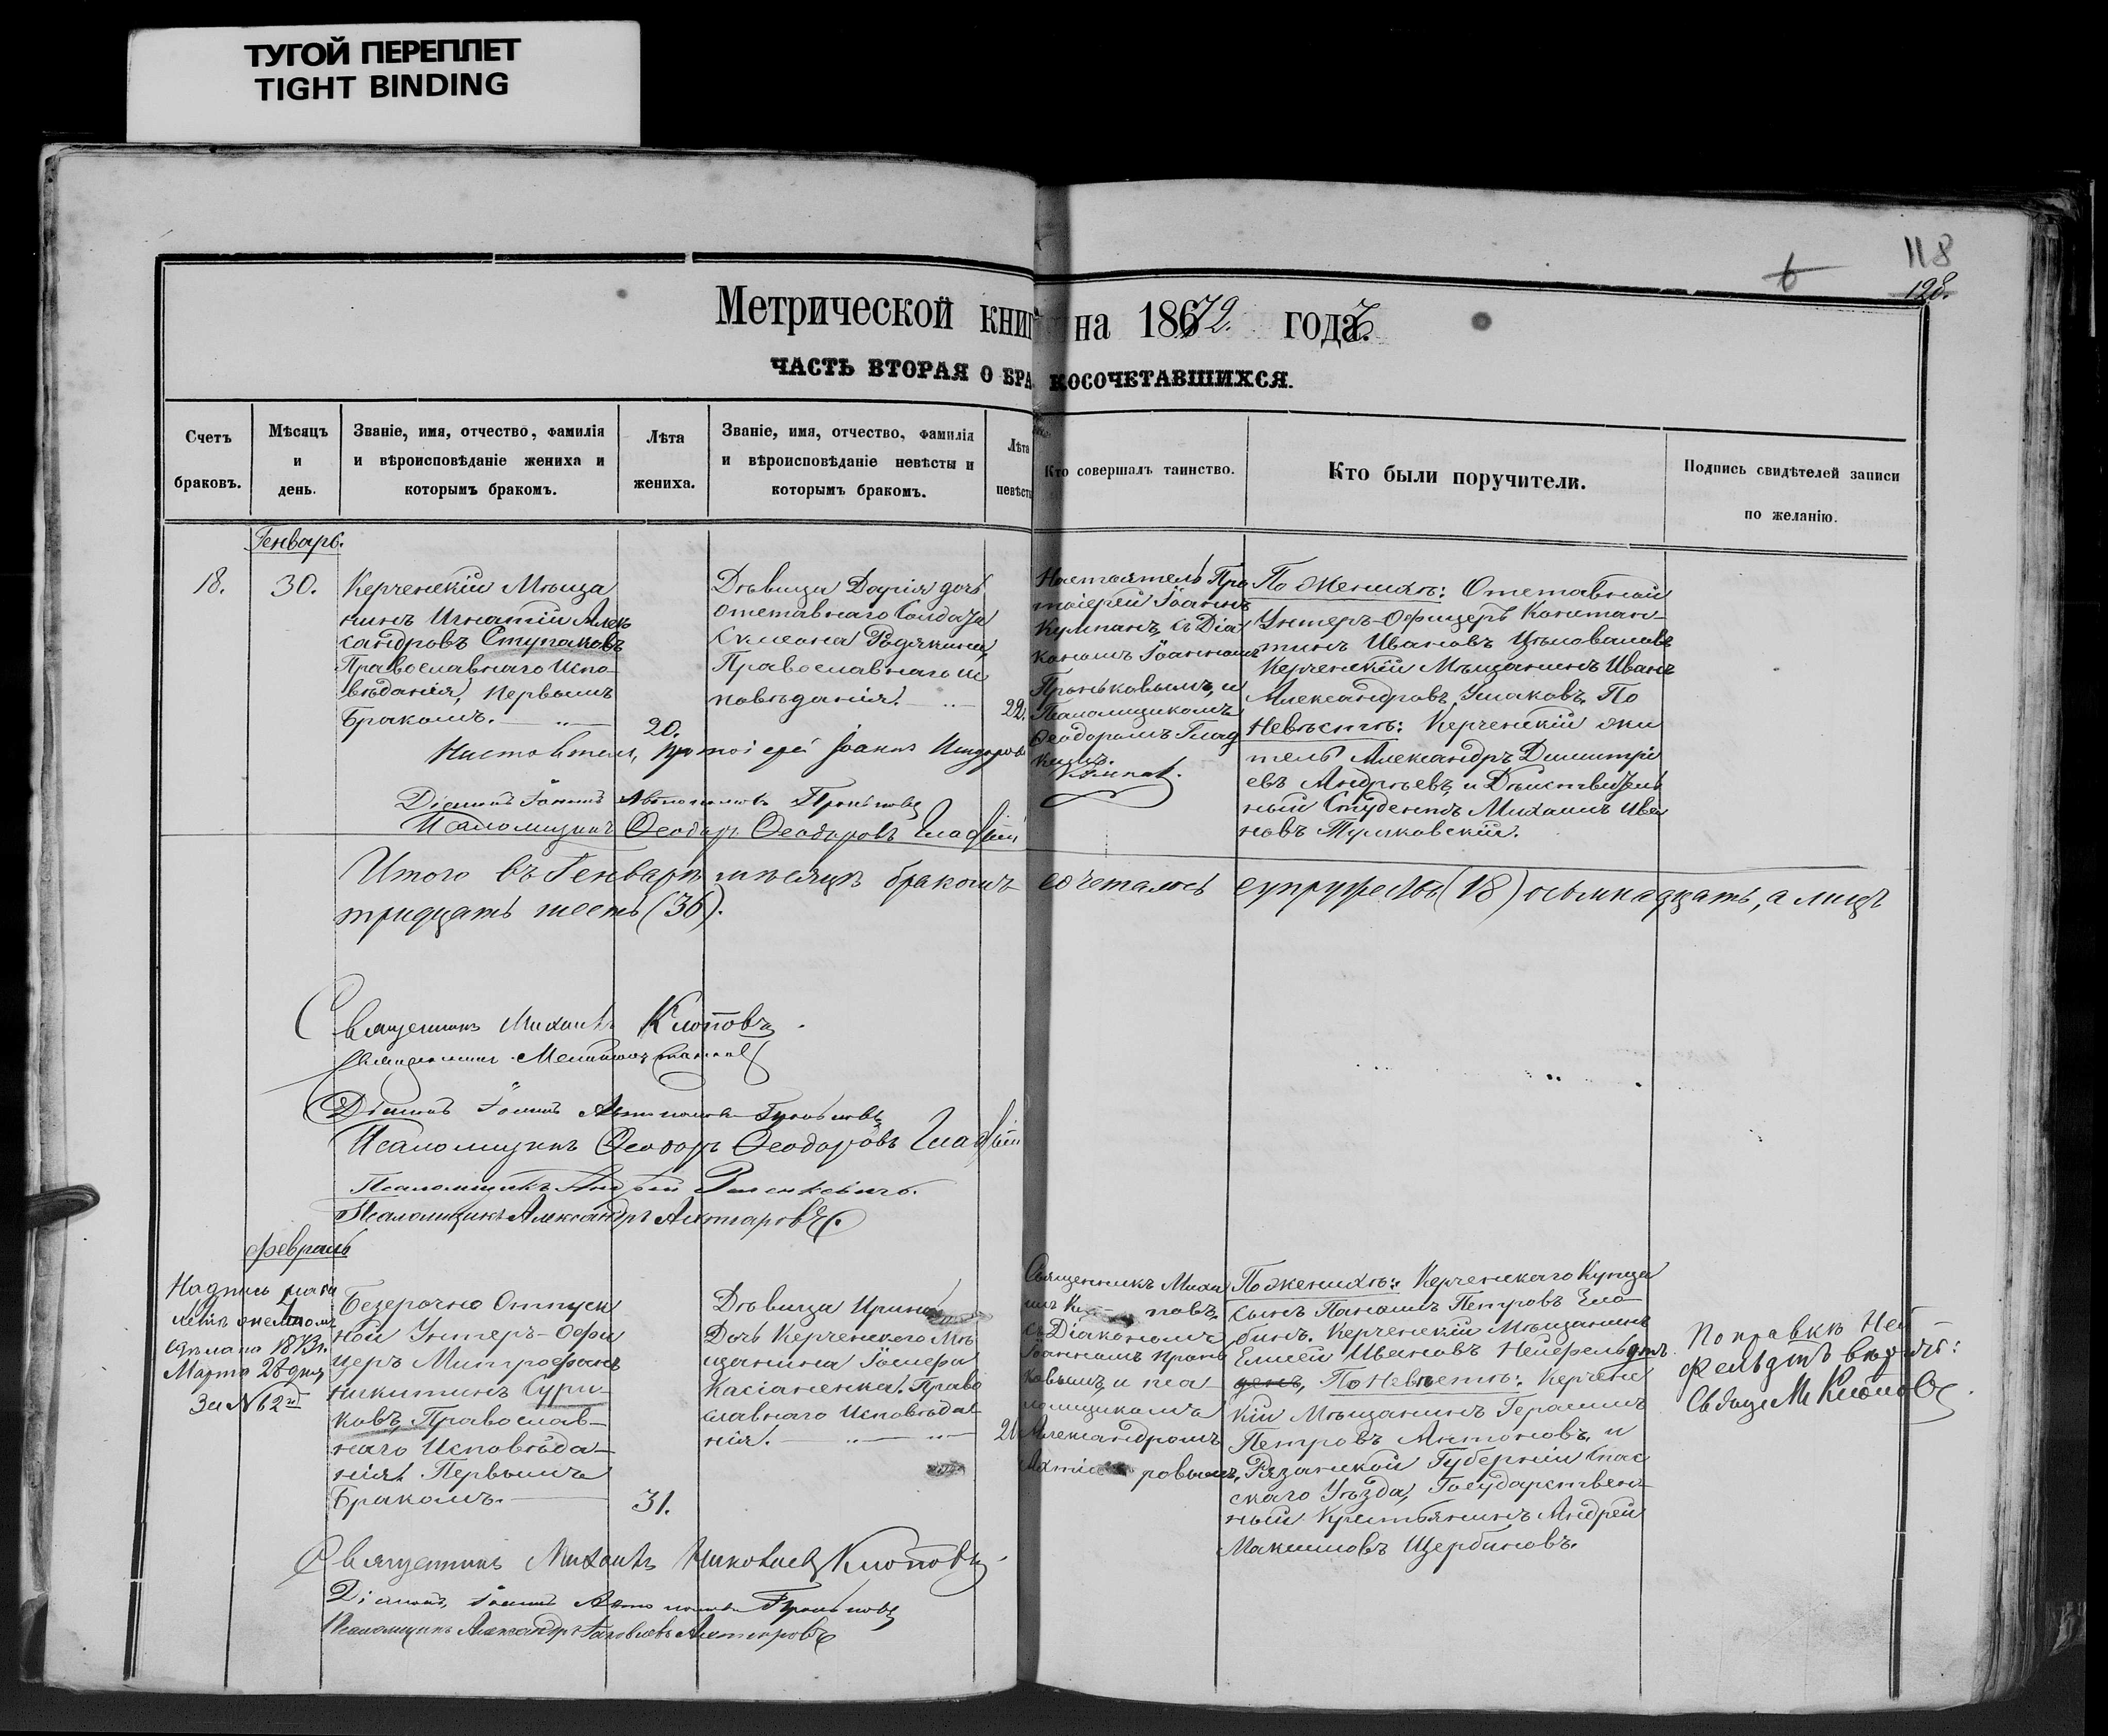 ТУГОЙ ПЕРЕПЛЕТ
TIGHT BINDING
118
128.
Метрической книг на 1872. года.
ЧАСТЬ ВТОРАЯ О БРАКОСОЧЕТАВШИХСЯ.
Счетъ
браковъ.
Мѣсяцъ
и
день.
Званіе, имя, отчество, фамилія
и вѣроисповѣданіе жениха и
которымъ бракомъ.
Лѣта
жениха.
Званіе, имя, отчество, фамилія
и вѣроисповѣданіе невѣсты и
которымъ бракомъ.
Лѣта
невѣсты
Кто совершалъ таинство.
Кто были поручители.
Подпись свидѣтелей записи
по желанію.
Генварь.
18.
30.
Керченскій Мѣща
нинъ Игнатій Алек
сандровъ Ступаковъ
Православнаго Испо-
вѣданія, первымъ
бракомъ.
20.
Дѣвица Дарія дочь
отставнаго Солдата
Симеона Родякина,
Православнаго ис
повѣданія.
22.
Настоятель Про
тоіерей Іоаннъ
Кумпанъ, съ Діа
кономъ Іоанномъ
Проньковымъ, и
Псаломщикомъ
Ѳеодоромъ Глад
кимъ.
По Женихѣ: Отставной
Унтеръ-Офицеръ Констан-
тинъ Ивановъ Цѣловановъ
Керченскій Мѣщанинъ Иванъ
Александровъ Ушаковъ. По
Невѣстѣ: Керченскій жи
тель Александръ Димитрі
евъ Андреевъ, и Дѣйствитель
ный Студентъ Михаилъ Ива
новъ Тумковскій.
Настоятель, протоіерей Іоаннъ
Діаконъ Іоаннъ Автономовъ Проньковъ
Псаломщикъ Ѳеодоръ Ѳеодоровъ Гладкій
Итого въ Генварѣ мѣсяцѣ бракомъ сочеталось супружествъ (18) осьмнадцать, а лицъ
тридцать шесть (36).
Священникъ Михаилъ Клоповъ.
Священникъ
Діаконъ Іоаннъ Автономовъ Проньковъ
Псаломщикъ Ѳеодоръ Ѳеодоровъ Гладкій
Псаломщикъ Андрей
Псаломщикъ Александръ Ахтыровъ.
Февраль
Надпись
сдѣлана 1873 г.
Марта 28 дня
За № 62
Безсрочно Отпуск
ной Унтеръ-Офи
церъ Митрофанъ
Никитинъ Сури-
ковъ, Православ-
наго Исповѣда-
нія. Первымъ
бракомъ.
31.
Дѣвица Ирина
Дочь Керченскаго Мѣ
щанина Іосифа
Касіаненка. Право
славнаго Исповѣда-
нія.
21
Священникъ Миха
илъ К повъ
съ Діакономъ
Іоанномъ Пронь
ковымъ, и пса
ломщикомъ
Александромъ
ровымъ.
По женихѣ: Керченскаго Купца
сынъ Пахомъ Петровъ Ело-
бинъ. Керченскій Мѣщанинъ
Елисей Ивановъ Нейфельдтъ
денъ, По Невѣстѣ: Керченс
кій Мѣщанинъ Герасимъ
Петровъ Антоновъ, и
Рязанской Губерніи Спас
скаго Уѣзда, Государствен-
ный Крестьянинъ Андрей
Максимовъ Щербиновъ.
Поправкѣ Ней-
фельдтъ вѣрить:
Священ М Клоповъ
Священникъ Михаилъ Николаевъ Клоповъ.
Діаконъ Іоаннъ Автономовъ Проньковъ
Псаломщикъ Александръ Яковлевъ Ахтыровъ